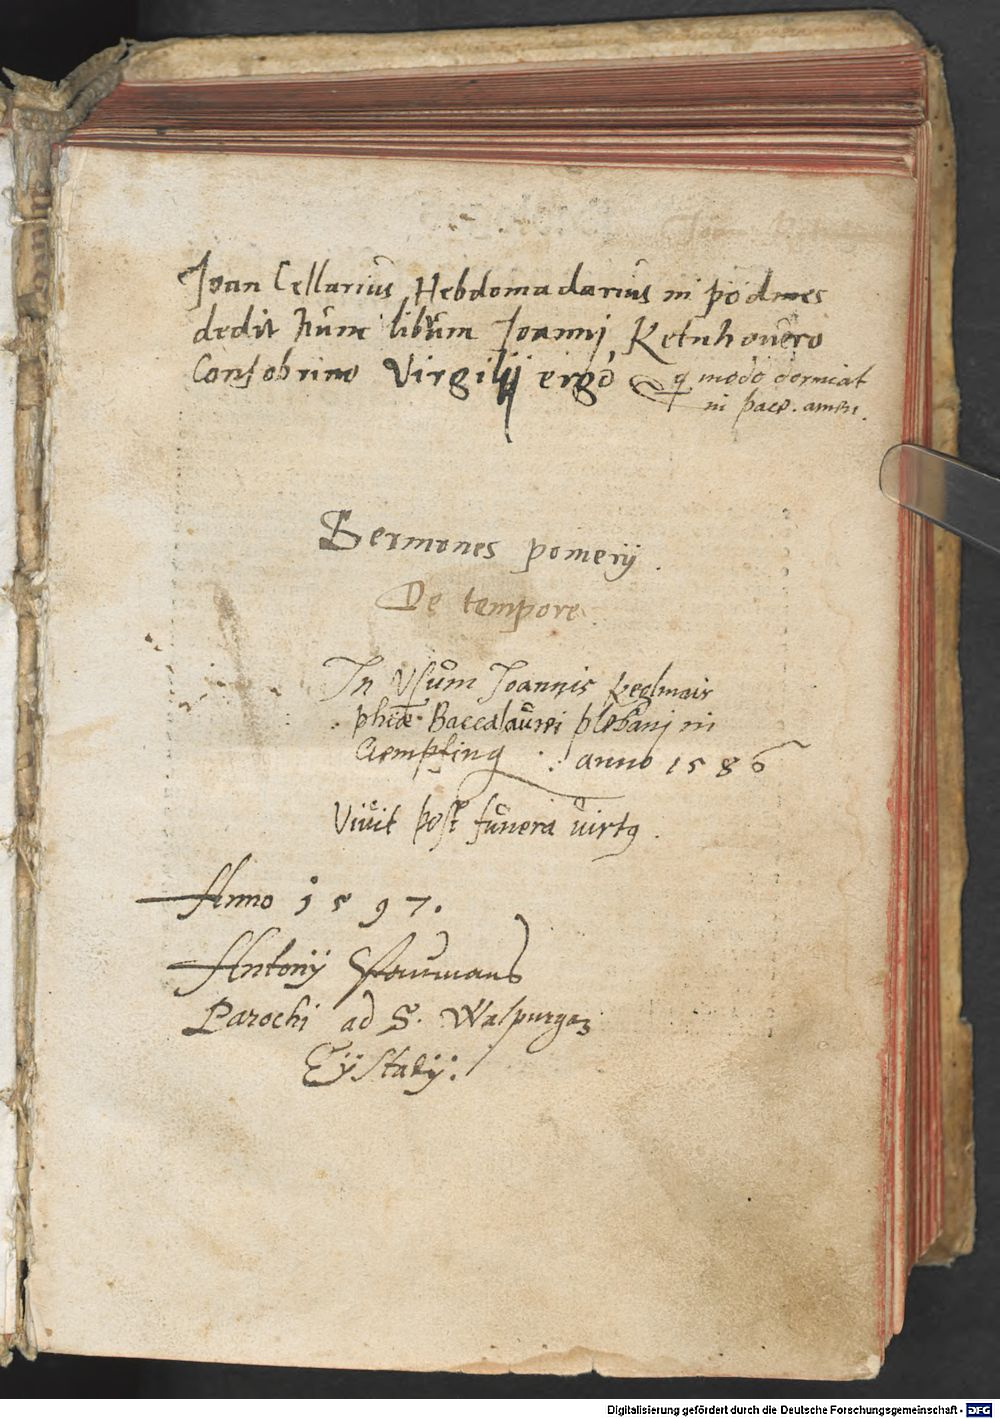 Joan Cellariůs Hebdomadariůs in
dedit hůnc librum Joanni Ketnhovero
Consobrino Virgilij ergo q modo dormiat
in pace. amen.
Sermones pomerij.
De tempore.
In Usům Joannis Keglmair
phiae Baccalaůrei plebanj in
Gempfing anno 1586
Vivit post fůnera virtq.
Anno 1597.
Antonij
Parochi ad S. Walpurgam
Eÿstadij:
Digitalisierung gefördert durch die Deutsche Forschungsgemeinschaft - DFG